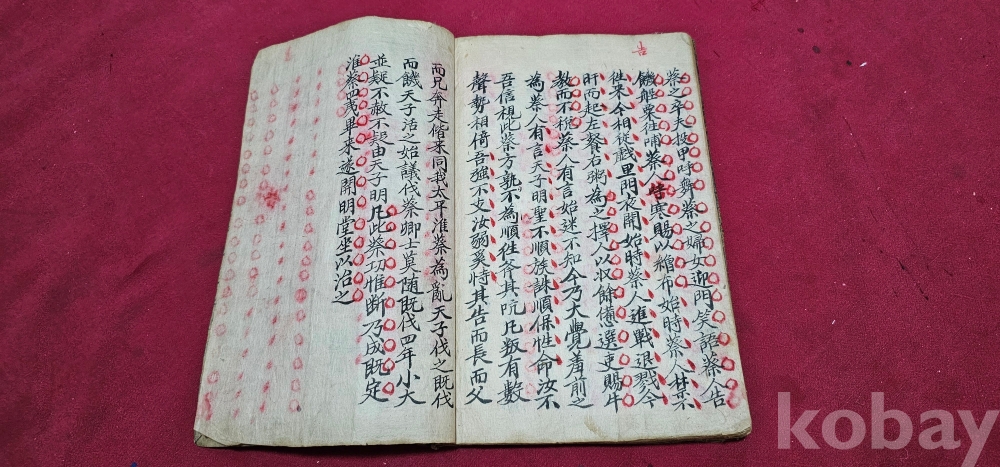 蔡之卒夫投甲呼舞蔡之婦女迎門笑語蔡人告
饑船粟往哺蔡人告寒賜以繒布始時蔡人禁不
徃来今相從戲里門夜開始時蔡人進戰退戮今
肝而起左餐右粥為之擇人以収餘憊選吏賜牛
教而不稅蔡人有言始迷不知今乃大覺羞前之
為蔡人有言天子明聖不順族誅順保性命汝不
吾信視此蔡方孰不為順徃斧其吭凡叛有數
聲勢相倚吾强不支汝弱奚恃其告而長而父
而兄奔走偕来同我太平淮蔡為亂天子伐之既伐
而饑天子活之始議伐蔡卿士莫随既伐四年小大
並疑不赦不疑由天子明凡此蔡功惟断乃成既定
淮蔡四夷畢来遂開明堂坐以治之
kobay